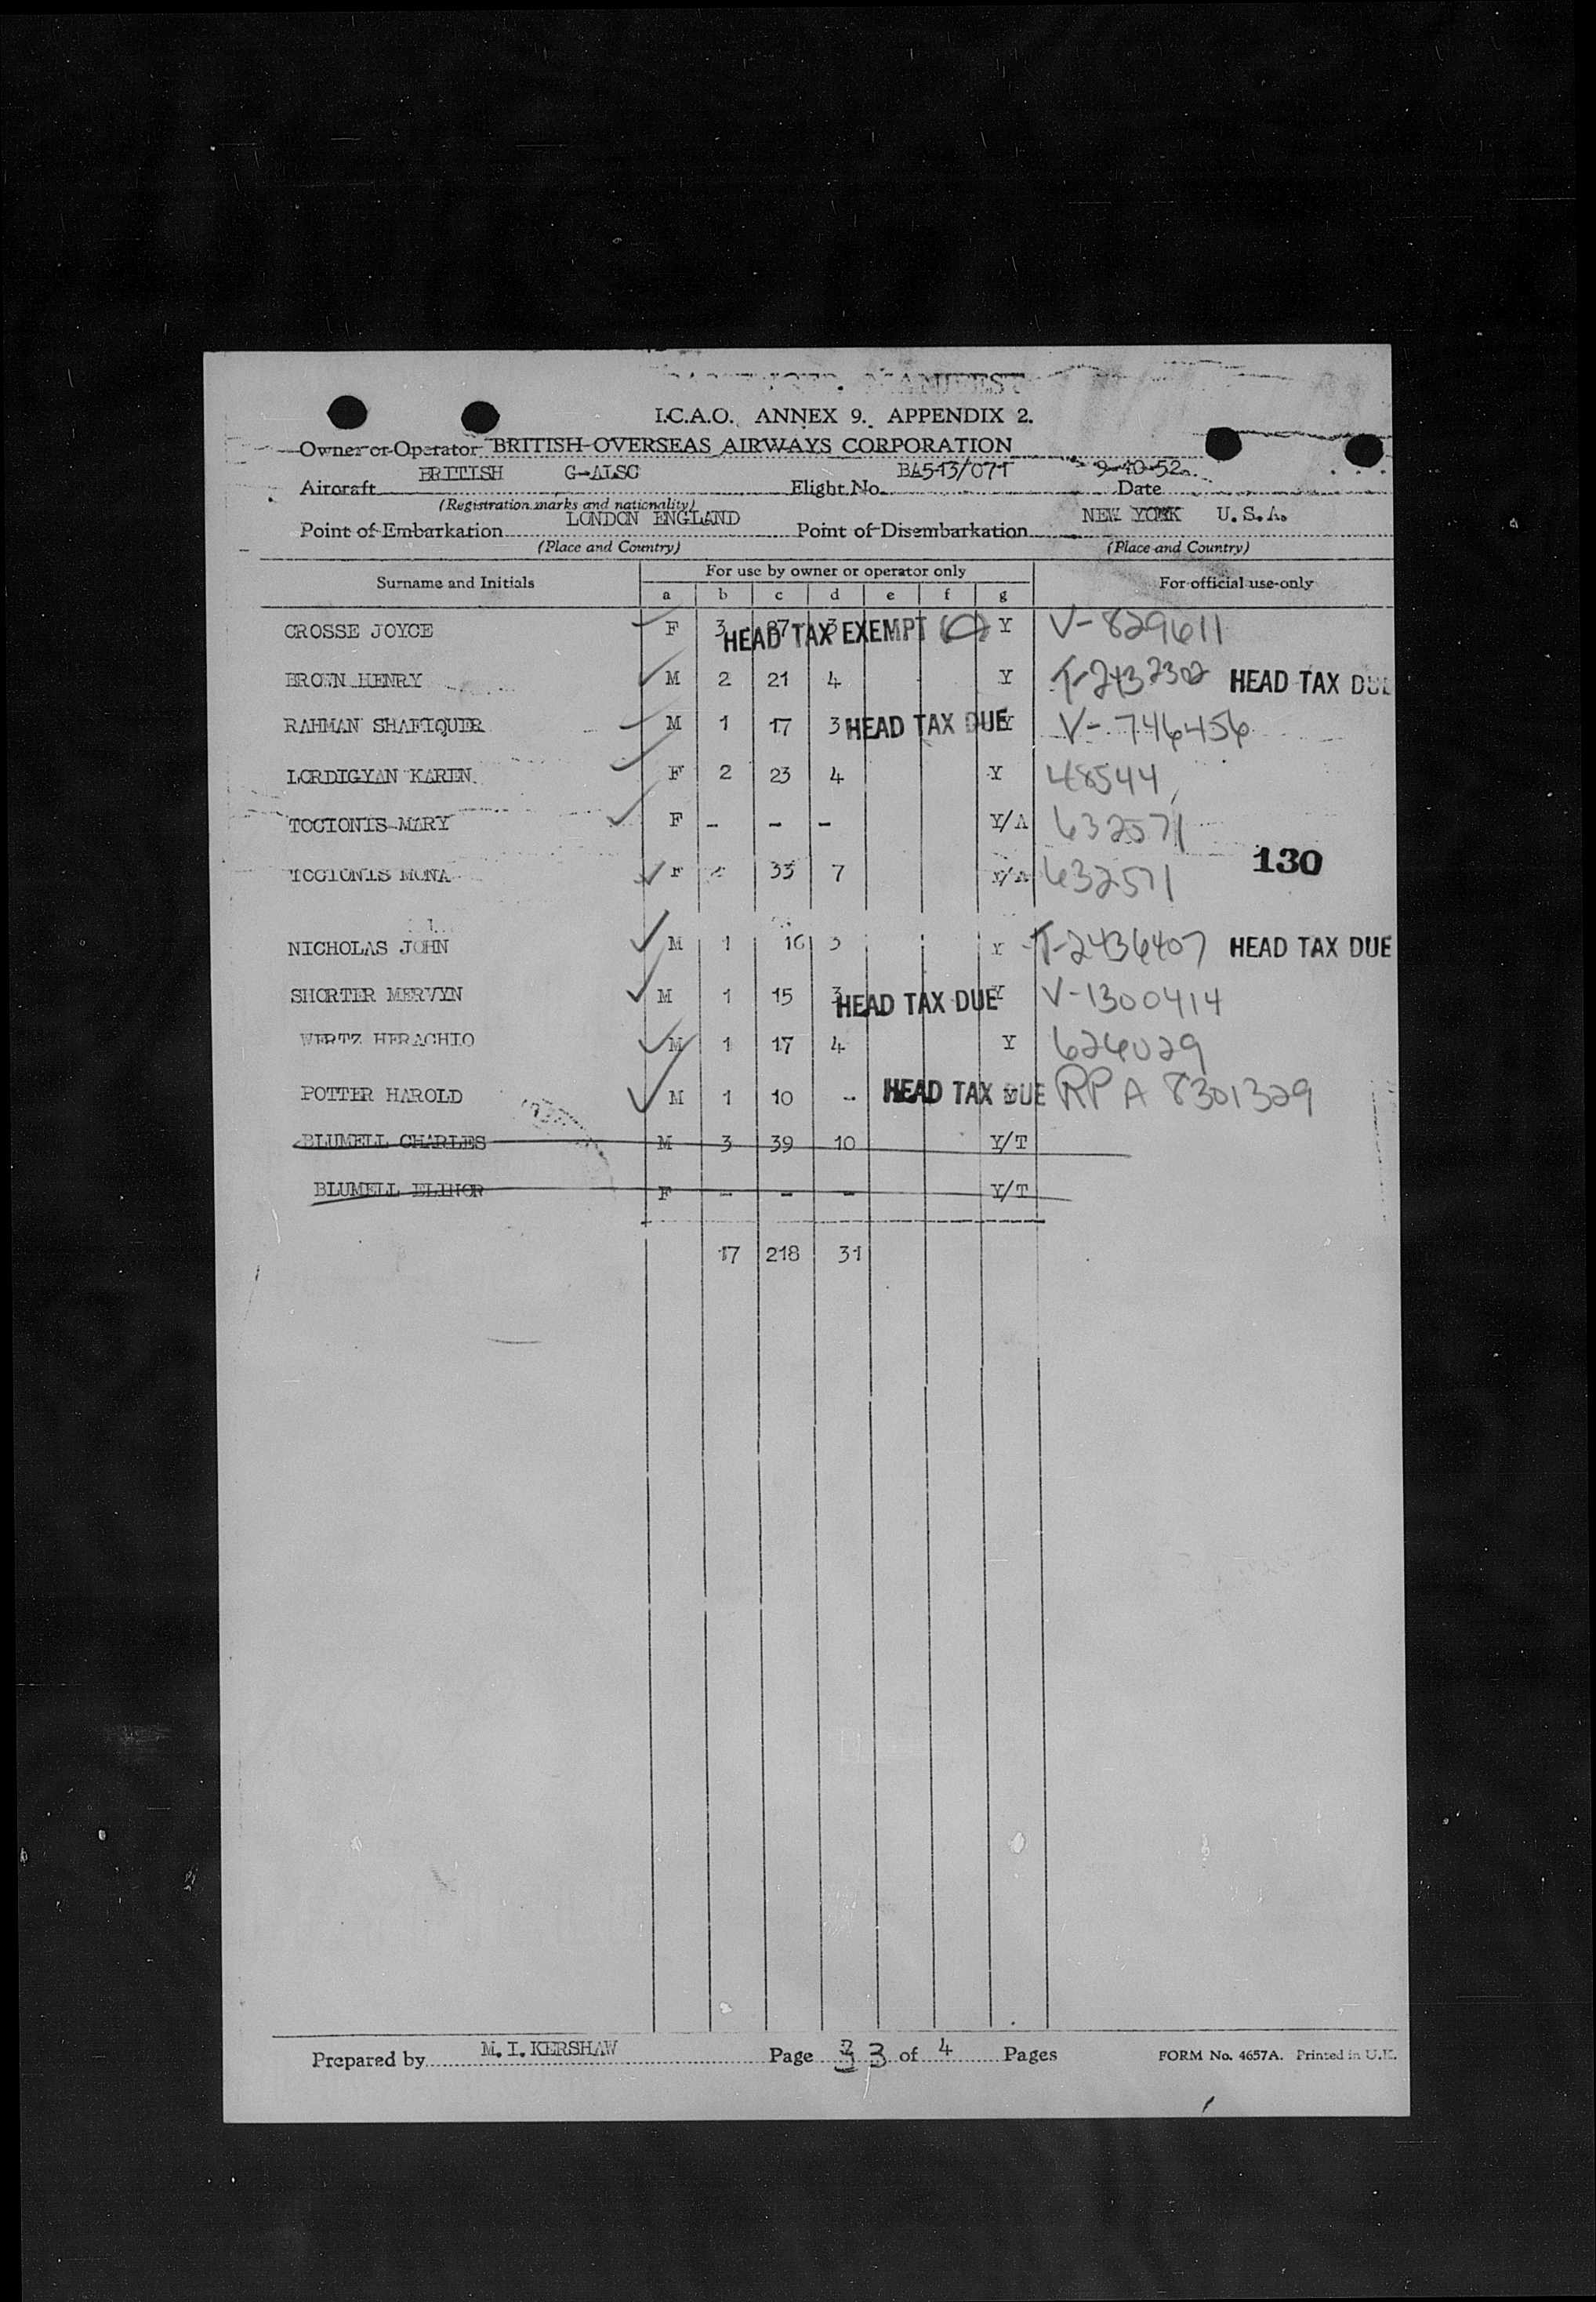 PASSENGER MANIFEST
I.C.A.O. ANNEX 9. APPENDIX 2.
Owner or Operator BRITISH OVERSEAS AIRWAYS CORPORATION
Aircraft BRITISH G-ALSC Flight No. BA513/071 Date 9-10-52.
(Registration marks and nationality)
Point of Embarkation LONDON ENGLAND Point of Disembarkation NEW YORK U.S.A.
(Place and Country) (Place and Country)
Surname and Initials For use by owner or operator only For official use only
a b c d e f g
CROSSE JOYCE F 3 37 3 HEAD TAX EXEMPT Y V-829611
BROWN HENRY M 2 21 4 Y T-2432302 HEAD TAX DUE
RAHMAN SHAFIQUER M 1 17 3 HEAD TAX DUE Y V-746456
LORDIGYAN KAREN. F 2 23 4 Y 48544
TOCIONIS MARY F - - - Y/A 632571
TOCIONIS MONA F 33 7 Y/A 632571
130
NICHOLAS JOHN M 1 16 3 Y T-2436407 HEAD TAX DUE
SHORTER MERVYN M 1 15 3 HEAD TAX DUE Y V-1300414
WERTZ HERACHIO M 1 17 4 Y 626029
POTTER HAROLD M 1 10 - HEAD TAX DUE RP A 8301329
BLUMELL CHARLES M 3 39 10 Y/T
BLUMELL ELINOR F - - - Y/T
17 218 31
Prepared by M.I.KERSHAW Page 3 3 of 4 Pages FORM No. 4657A. Printed in U.K.